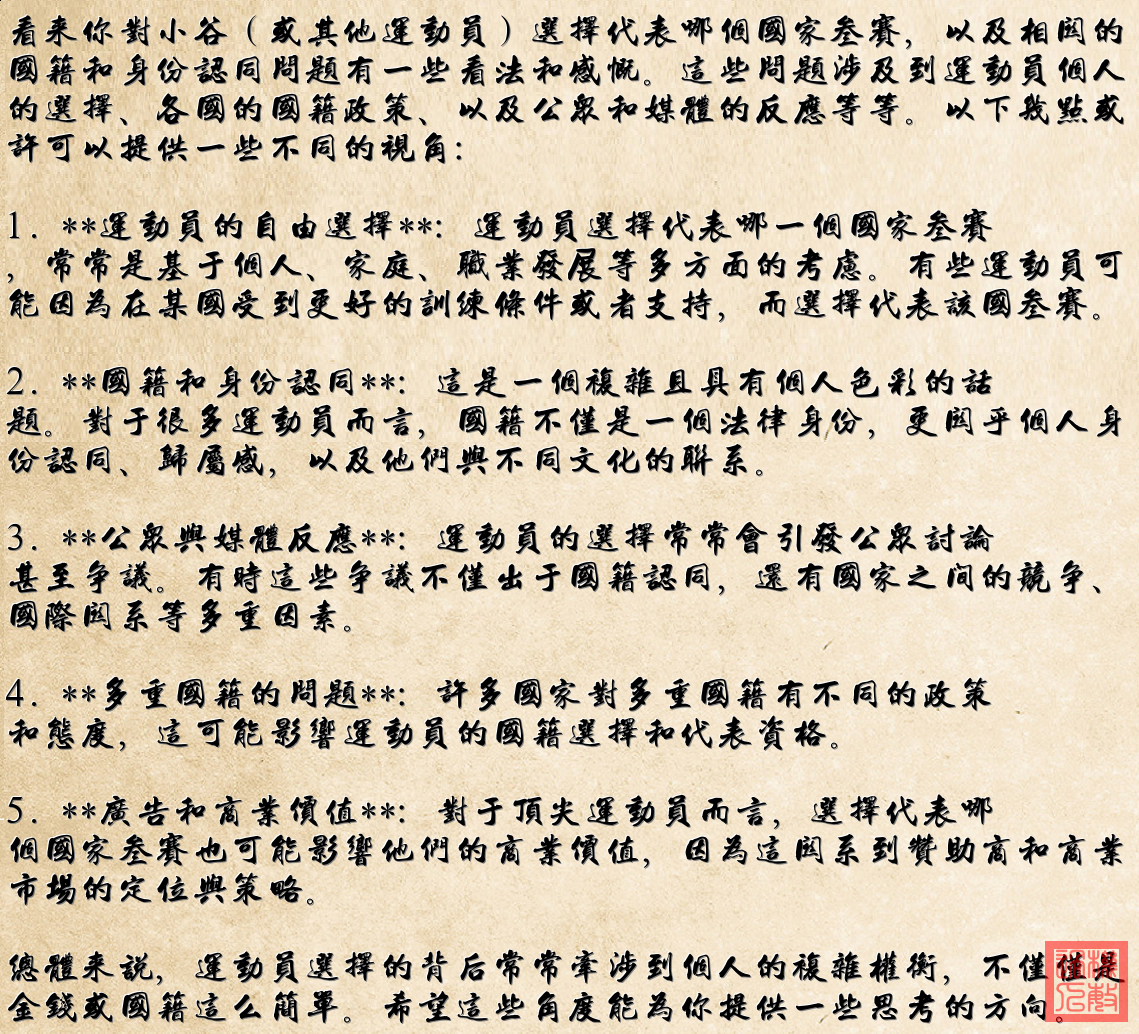 看来你對小谷（或其他運動員）選擇代表哪個國家叁賽，以及相関的
國籍和身份認同問題有一些看法和感慨。這些問題涉及到運動員個人
的選擇、各國的國籍政策、以及公眾和媒體的反應等等。以下幾點或
許可以提供一些不同的視角：
1. **運動員的自由選擇**：運動員選擇代表哪一個國家叁賽
，常常是基于個人、家庭、職業發展等多方面的考慮。有些運動員可
能因為在某國受到更好的訓練條件或者支持，而選擇代表該國叁賽。
2. **國籍和身份認同**：這是一個複雜且具有個人色彩的話
題。對于很多運動員而言，國籍不僅是一個法律身份，更関乎個人身
份認同、歸屬感，以及他們與不同文化的聯系。
3. **公眾與媒體反應**：運動員的選擇常常會引發公眾討論
甚至争議。有時這些争議不僅出于國籍認同，還有國家之间的競争、
國際関系等多重因素。
4. **多重國籍的問題**：許多國家對多重國籍有不同的政策
和態度，這可能影響運動員的國籍選擇和代表資格。
5. **廣告和商業價值**：對于頂尖運動員而言，選擇代表哪
個國家叁賽也可能影響他們的商業價值，因為這関系到贊助商和商業
市場的定位與策略。
總體来説，運動員選擇的背后常常牽涉到個人的複雜權衡，不僅僅是
金錢或國籍這么簡單。希望這些角度能為你提供一些思考的方向。